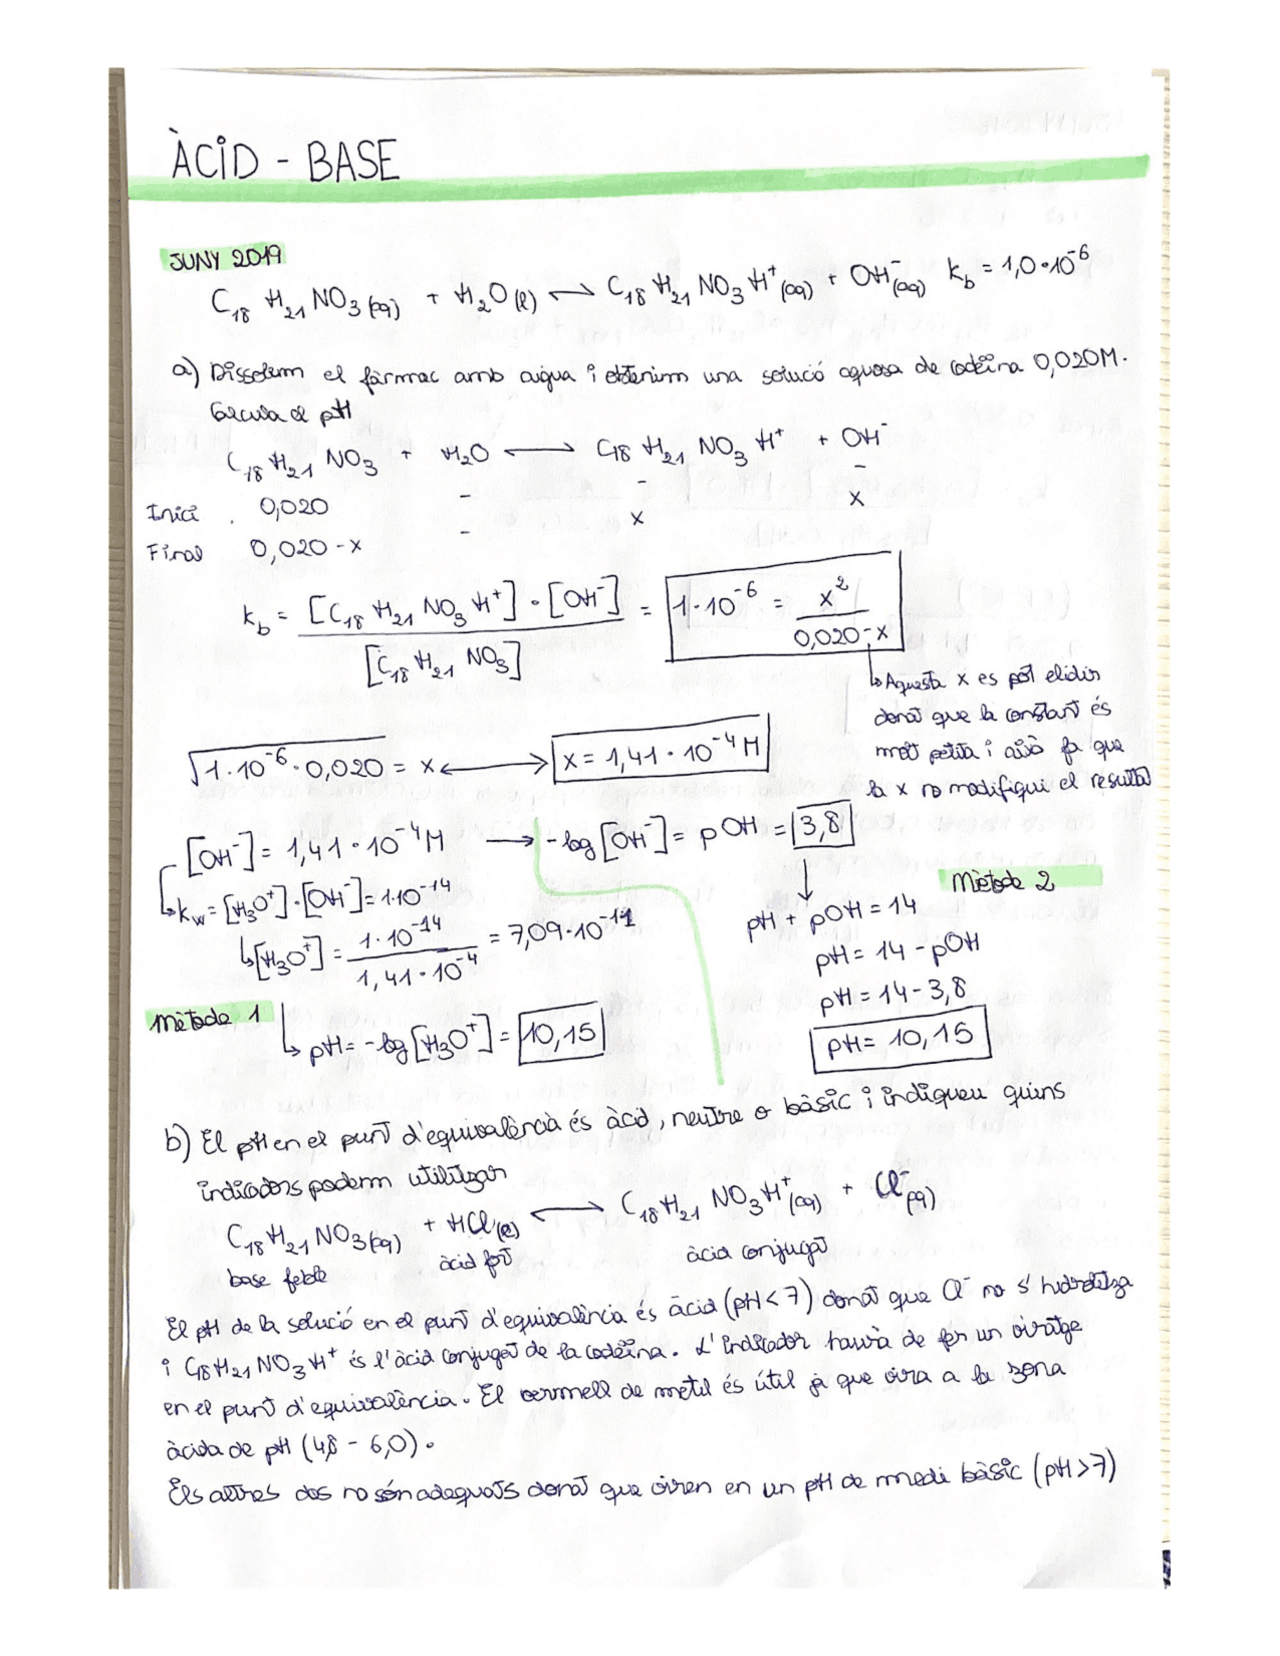 ÀCID - BASE
JUNY 2019
C₁₈ H₂₁ NO₃ (aq) + H₂O (l) ⟷ C₁₈ H₂₁ NO₃ H⁺ (aq) + OH⁻ (aq) k_b = 1,0·10⁻⁶
a) Dissolem el fàrmac amb aigua i obtenim una solució aquosa de codeïna 0,020M.
Calcula el pH
C₁₈ H₂₁ NO₃ + H₂O ⟷ C₁₈ H₂₁ NO₃ H⁺ + OH⁻
Inici . 0,020 - - -
Final 0,020-x - x x
k_b = [C₁₈ H₂₁ NO₃ H⁺] · [OH⁻] / [C₁₈ H₂₁ NO₃] = 1·10⁻⁶ = x² / 0,020-x
↳ Aquesta x es pot elidir
donat que la constant és
molt petita i això fa que
la x no modifiqui el resultat
√1·10⁻⁶·0,020 = x ⟷ x = 1,41·10⁻⁴ M
[OH⁻] = 1,41·10⁻⁴ M → -log [OH⁻] = pOH = 3,8
↳ kw = [H₃O⁺]·[OH⁻] = 1·10⁻¹⁴
↳ [H₃O⁺] = 1·10⁻¹⁴ / 1,41·10⁻⁴ = 7,09·10⁻¹¹
Mètode 1
↳ pH = -log [H₃O⁺] = 10,15
Mètode 2
↓
pH + pOH = 14
pH = 14 - pOH
pH = 14 - 3,8
pH = 10,15
b) El pH en el punt d'equivalència és àcid, neutre o bàsic i indiqueu quins
indicadors podem utilitzar
C₁₈ H₂₁ NO₃ (aq) + HCl (l) ⟷ C₁₈ H₂₁ NO₃ H⁺ (aq) + Cl⁻ (aq)
base feble àcid fort àcid conjugat
El pH de la solució en el punt d'equivalència és àcid (pH<7) donat que Cl⁻ no s'hidrolitza
i C₁₈ H₂₁ NO₃ H⁺ és l'àcid conjugat de la codeïna. L'indicador haurà de fer un viratge
en el punt d'equivalència. El vermell de metil és útil ja que vira a la zona
àcida de pH (4,8 - 6,0).
Els altres dos no són adequats donat que viren en un pH de medi bàsic (pH>7)